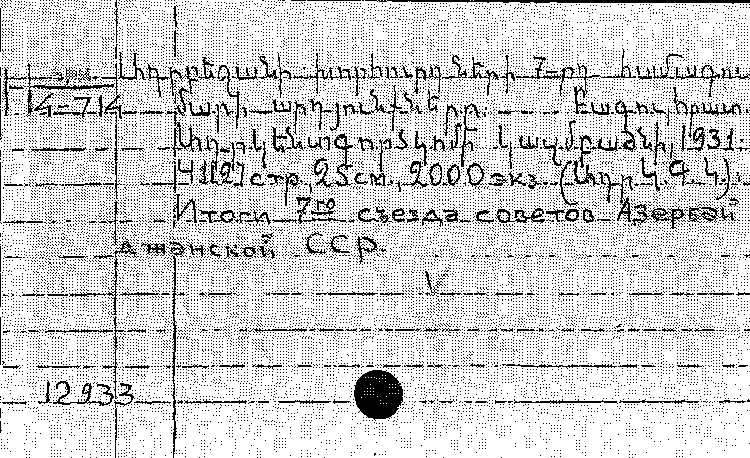 Ադրբեջանի խորհուրդների 7-րդ համագու
4-714 մարի արդյունքները. Բագու, հրատ.
Ադրկենտգործկոմի կազմբաժնի, 1931.
41 стр., 25см., 2000 экз. (Ադր. Կ. Գ. Կ.).
Итоги 7го съезда советов Азербай
джанской ССР.
12933